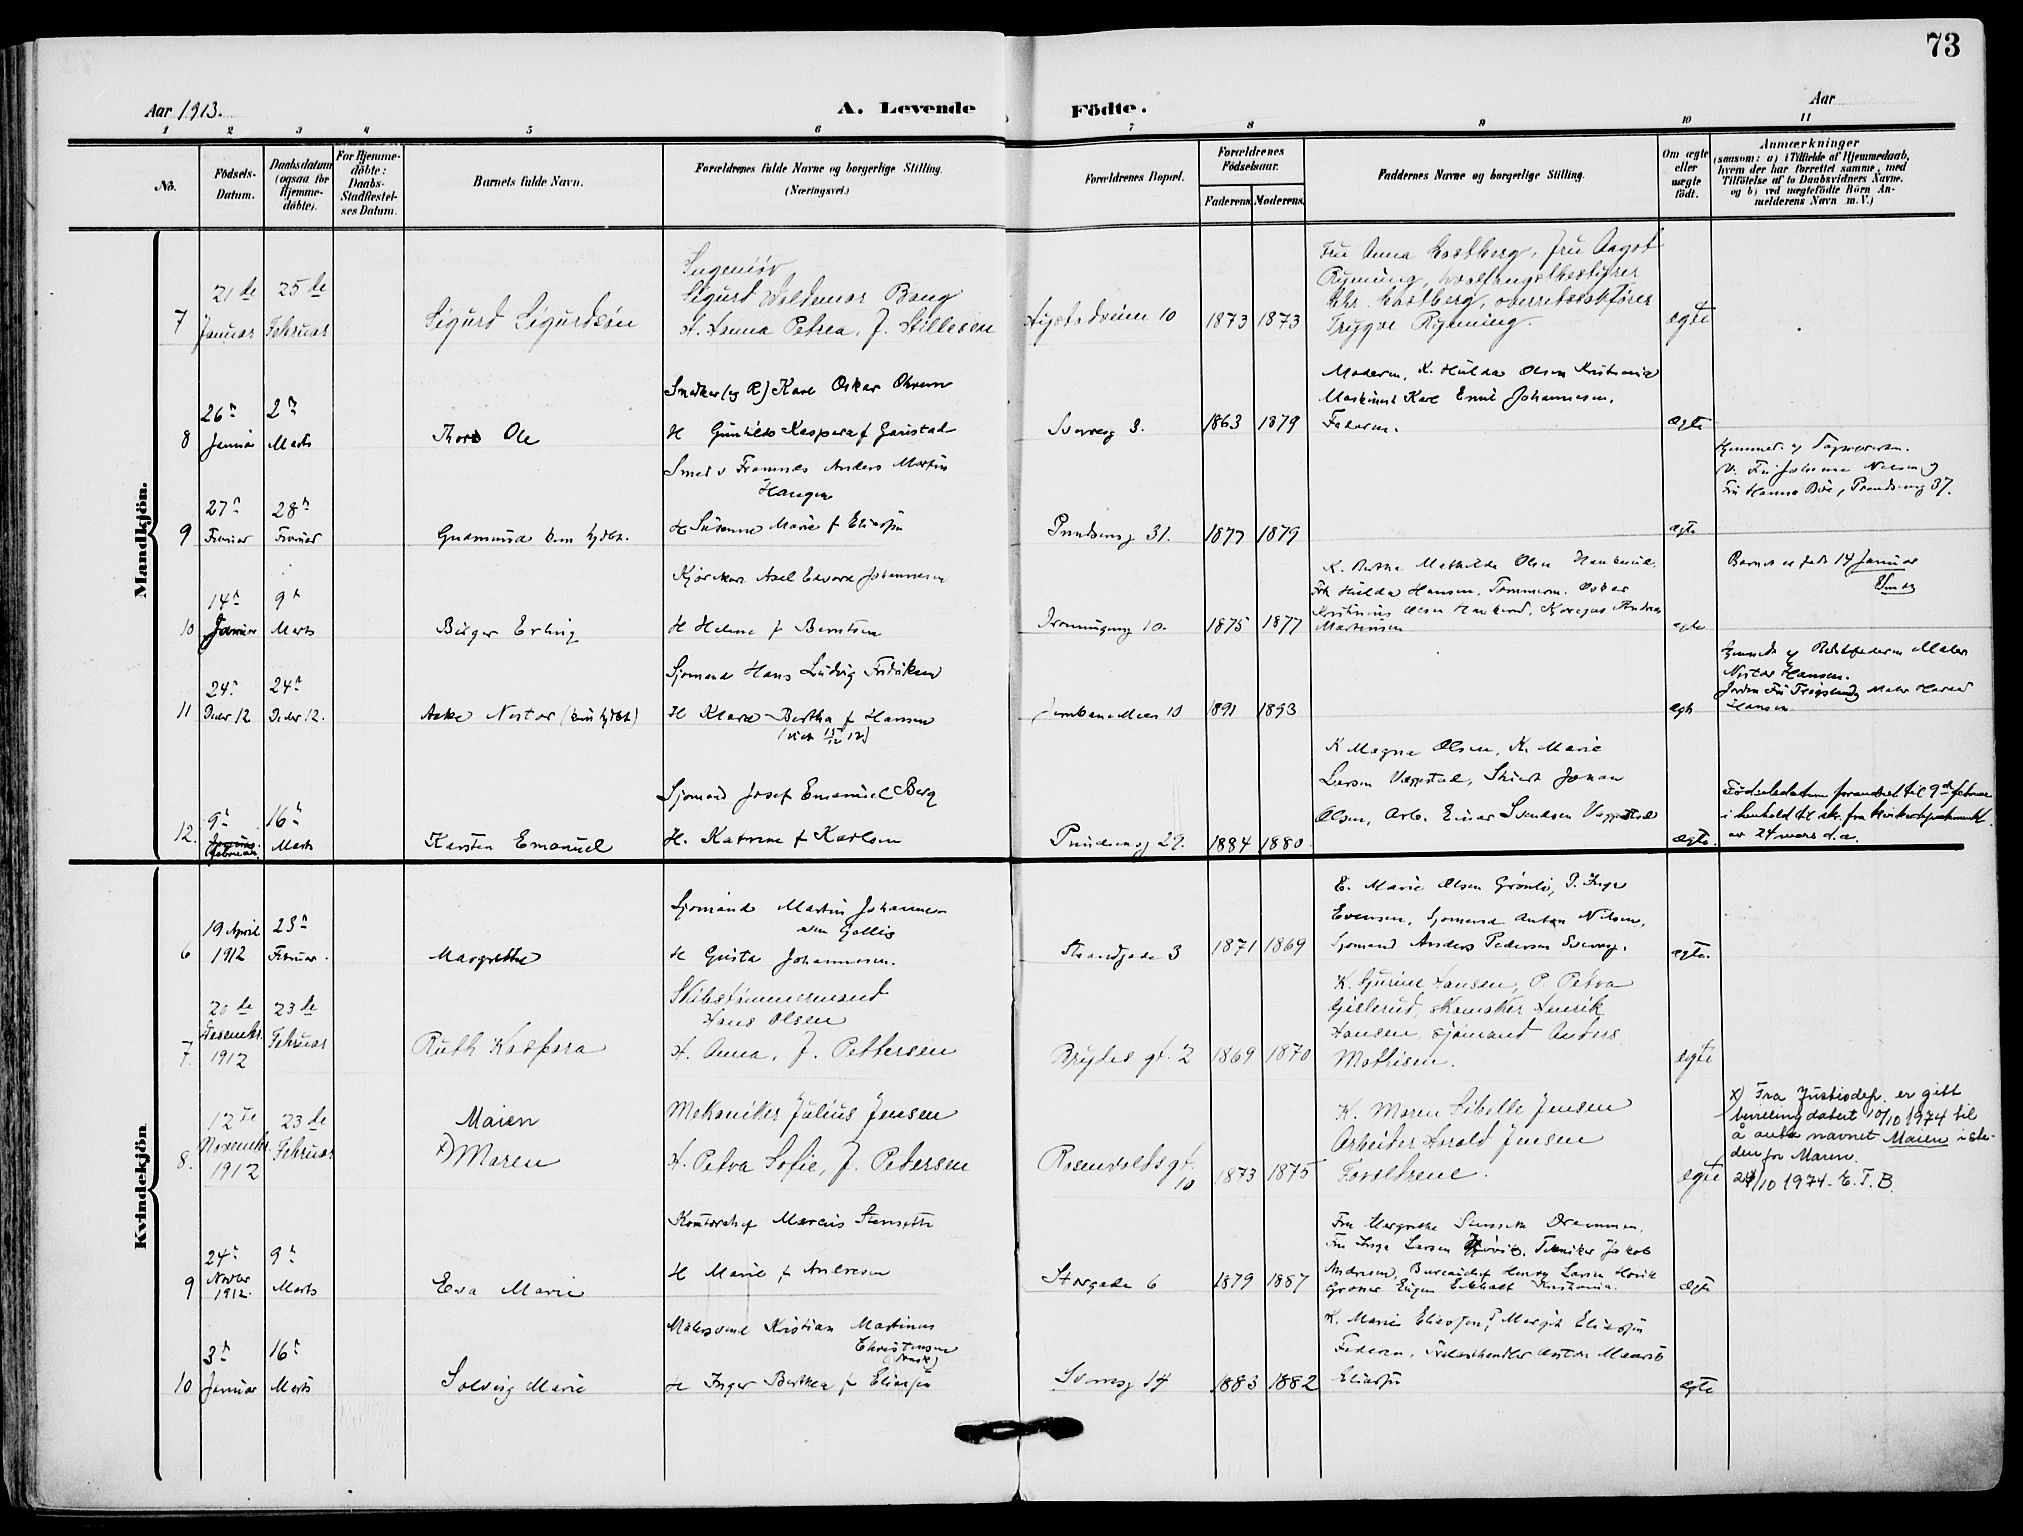 73
Aar 1913.
A. Levende Födte.
Aar
1 2 3 4 5 6 7 8 9 10 11
No.
Födsels-Datum.
Daabsdatum (ogsaa for Hjemme-döbte).
For Hjemme-döbte: Daabs-Stadfæstel-ses Datum.
Barnets fulde Navn.
Forældrenes fulde Navne og borgerlige Stilling. (Næringsvei.)
Forældrenes Bopæl.
Forældrenes Födselsaar.
Faderens. Moderens.
Faddernes Navne og borgerlige Stilling.
Om ægte eller uægte födt.
Anmærkninger
(saasom: a) i Tilfælde af Hjemmedaab, hvem der har forrettet samme, med Tilföielse af to Daabsvidners Navne, og b) ved uægtefödte Börn An-melderens Navn m. V.)
Mandkjön.
7
21de Januar
25de Februar
Sigurd Sigurdsön
Ingeniör
Sigurd Valdemar Bang
H. Anna Petrea, f. Stillesen
10
1873 1873
Fru Anna Castberg, Fru Aagot
Rynning, hvalfangstbestyrer
Chr. Castberg, overretssakförer
Trygve Rynning.
ægte
8
26n Januar
2n Marts
Thors Ole
Snedker (og R) Karl Oskar
H Gunhild Kaspara f
3.
1863 1879
Moderen, K. Hulda Olsen Kristiania
Maskinist Karl Emil Johannesen.
Faderen.
ægte
9
27n Februar
28n Februar
Gudmund
Smed v Framnæs Anders Martin
Haugen
H Susanne Marie f Eliassen
Prindsensg 31.
1877 1879
ægte
V. Fru Johanne Nilsen og
Fru Hanna Böe, Prindsensg 37.
10
14n Januar
9n Marts
Birger Erling
Axel Edvard Johannesen
H Helene f Berntsen
Dronningensg 10.
1875 1877
K. Berthe Mathilde Olsen
Frk Hulda Hansen, Tömmerm. Oskar
Kristinius Olsen
Martinsen
ægte
Barnet er födt 14 Januar
11
24n Decbr 12
24n Decbr 12.
Aake Nestor
Sjömand Hans Ludvig Fredriksen
H Klara Bertha f Hansen
10
1891 1893
ægte
Maler
Nestor Hansen.
Hansen
12.
9n Januar Februar
16n Marts
Karsten Emanuel
Sjömand Josef Emanuel Berg
H. Katrine f Karlsen
Prindsensg 29.
1884 1880
K Magna Olsen, K. Marie
Larsen Vegestad, Johan
Olsen, Arb. Einar Svendsen
ægte.
Födselsdatum forandret til 9de februar
i henhold til skr. fra Kirkedepartementet
av 24 mars d.a.
Kvindekjön
6
19 April 1912
23n Februar
Margrethe
Sjömand Martin Johannes-
sen Gallis
H Gusta Johannesen.
Strandgade 3
1871 1869
E. Marie Olsen Grönli, P. Inga
Evensen, Sjömand Anton Nilsen,
Sjömand Anders Pedersen
ægte.
7.
20de Desembr. 1912
23de Februar
Ruth Kaspara
Skibstömmermand
Hans Olsen
H. Anna, f. Pettersen
Brydes gt. 2
1869 1870
K. Gurine Hansen, P. Petra
Gjellerud, skomaker Henrik
Hansen, sjömand Anders
Mathisen.
ægte
8.
12te Novembr. 1912
23de Februar
Maien
x) Maren
Mekaniker Julius Jensen
H. Petra Sofie, f. Petersen
Rosenvoldsgt. 10
1873 1875
K. Maren Sibelle Jensen
Arbeider Harald Jensen
Foreldrene.
ægte
x) Fra Justisdep. er gitt
bevilling datert 10/10 1974 til
å anta navnet Maien i ste-
den for Maren.
24/10 1974. E. T. B.
9
24n Novbr 1912.
9n Marts
Eva Marie
Kontorchef Marcus Stenseth
H Marie f Andresen
Storgade 6
1879 1887
Fru Margrethe Stenseth Drammen,
Fru Inga Larsen Tekniker Jakob
Andresen, Bureauchef Henry Larsen
Eugen Kristiania.
ægte
10
3n Januar
16n Marts
Solveig Marie
Malersvend Kristian Martinus
Christensen
(dansk)
H Inger Berthea f Eliassen
Sverresg 14
1883 1882
K. Marie Eliassen, P Margit Eliassen
Faderen, Anton Mauritz
Eliassen
ægte